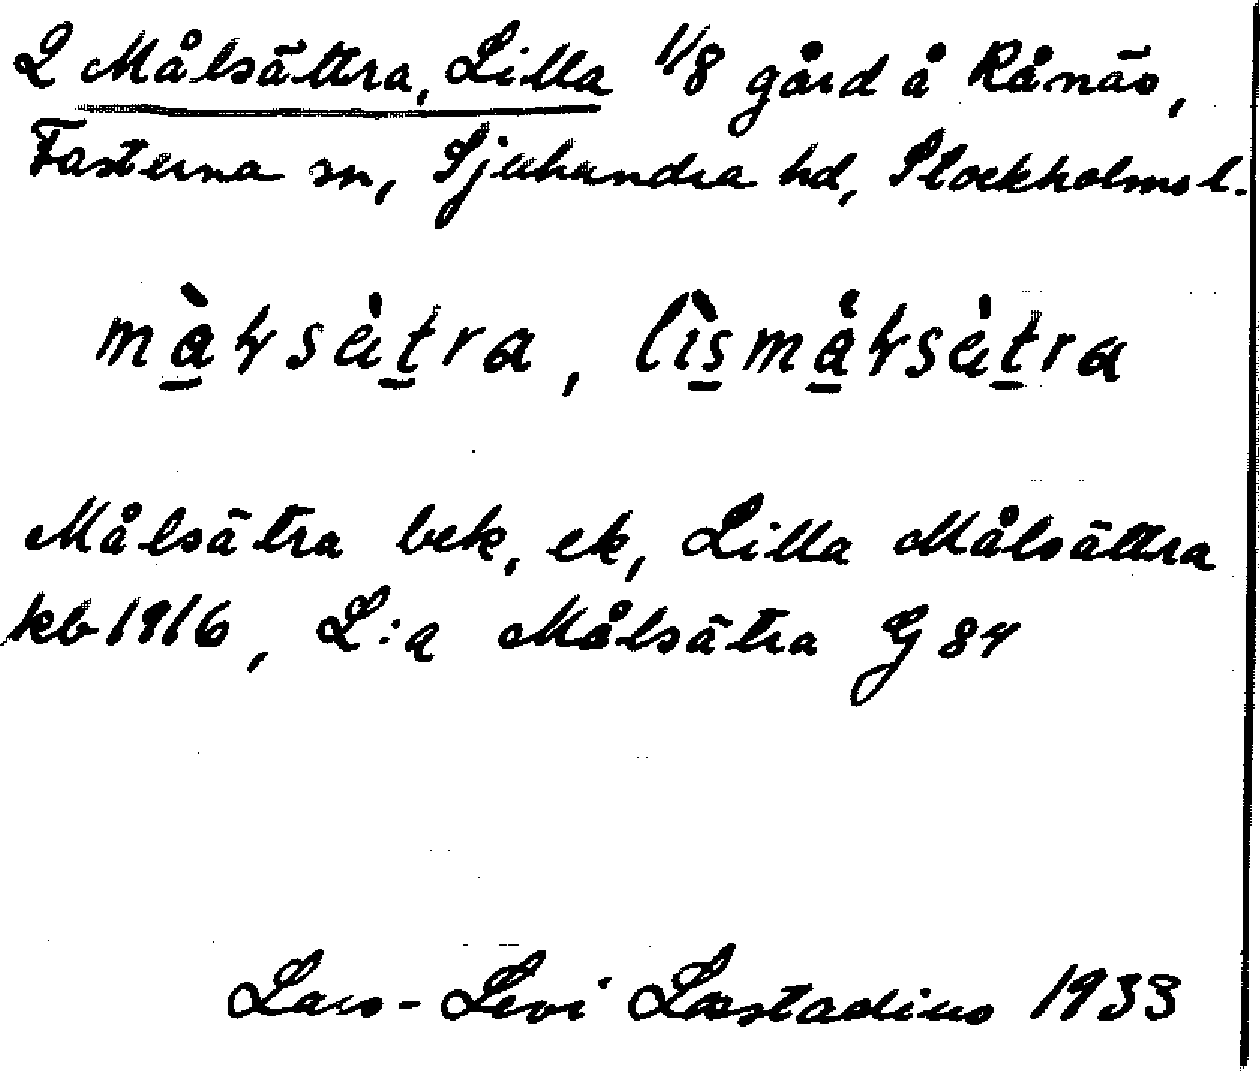 2 Målsättra, Lilla 1/8 gård å Rånäs,
Fasterna sn, Sjuhundra hd, Stockholms l.
màɫsètra, lìsmåɫsètra
Målsätra bek, ek, Lilla Målsättra
kb 1916, L:a Målsätra G 84
Lars-Levi Læstadius 1933